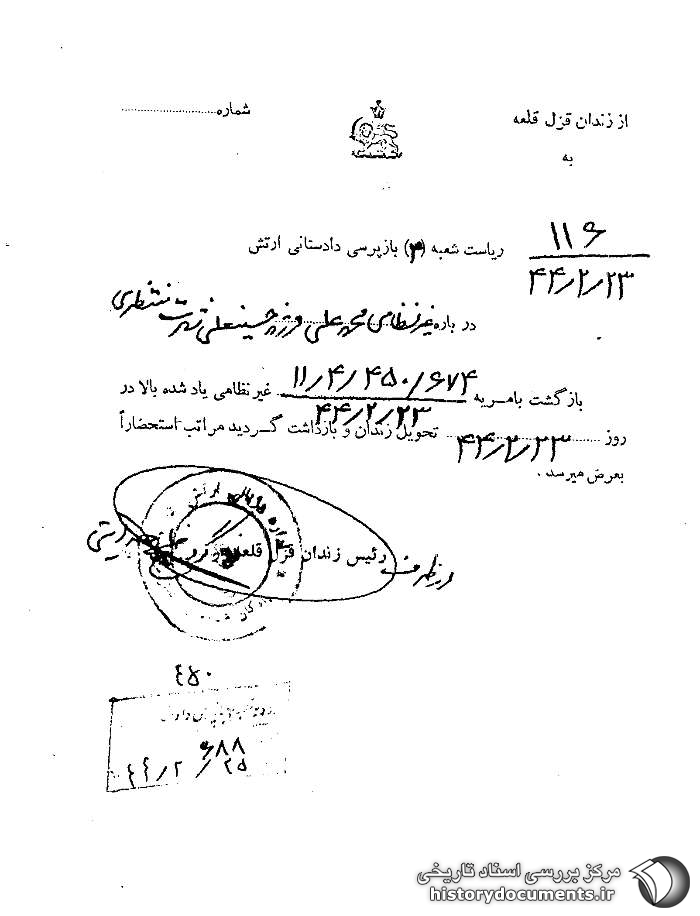 از زندان قزل قلعه
شماره
به
۱۱۶
۴۴/۲/۲۳
ریاست شعبه (۴) بازپرسی دادستانی ارتش
در باره غیرنظامی محمد علی فرزند حسینعلی شهرت منتظری
بازگشت بامریه ۱۱/۴/۴۵۰/۶۷۴ غیرنظامی یاد شده بالا در
۴۴/۲/۲۳
روز ۴۴/۲/۲۳ تحویل زندان و بازداشت گردید مراتب استحضاراً
بعرض میرسد .
رئیس زندان قزل قلعه
از طرف
۴۵۰
۶۸۸
۴۴/۲/۲۵
مرکز بررسی اسناد تاریخی
historydocuments.ir